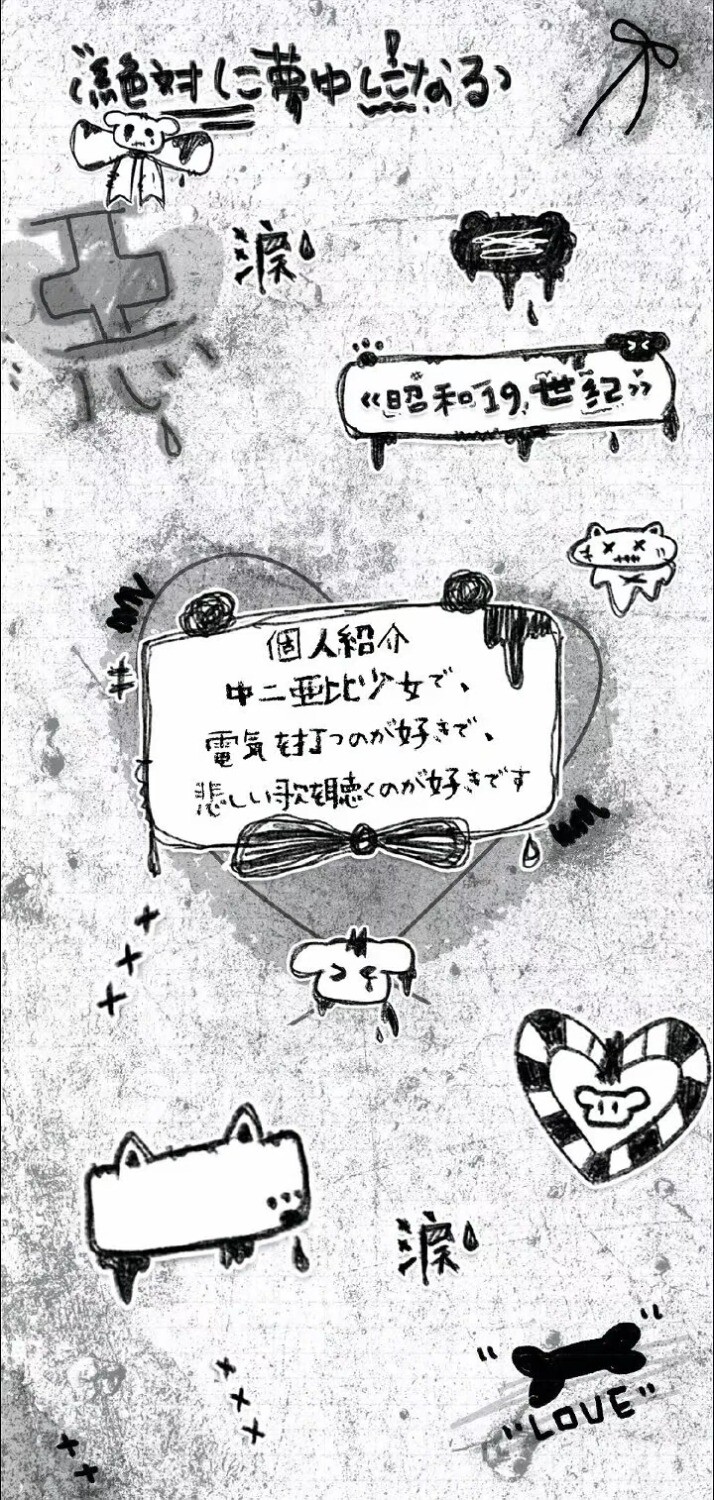 絶対に夢中になる
涙
《昭和19世紀》
個人紹介
中二亜比少女で、
電気を打つのが好きで、
悲しい歌を聴くのが好きです
涙
"LOVE"